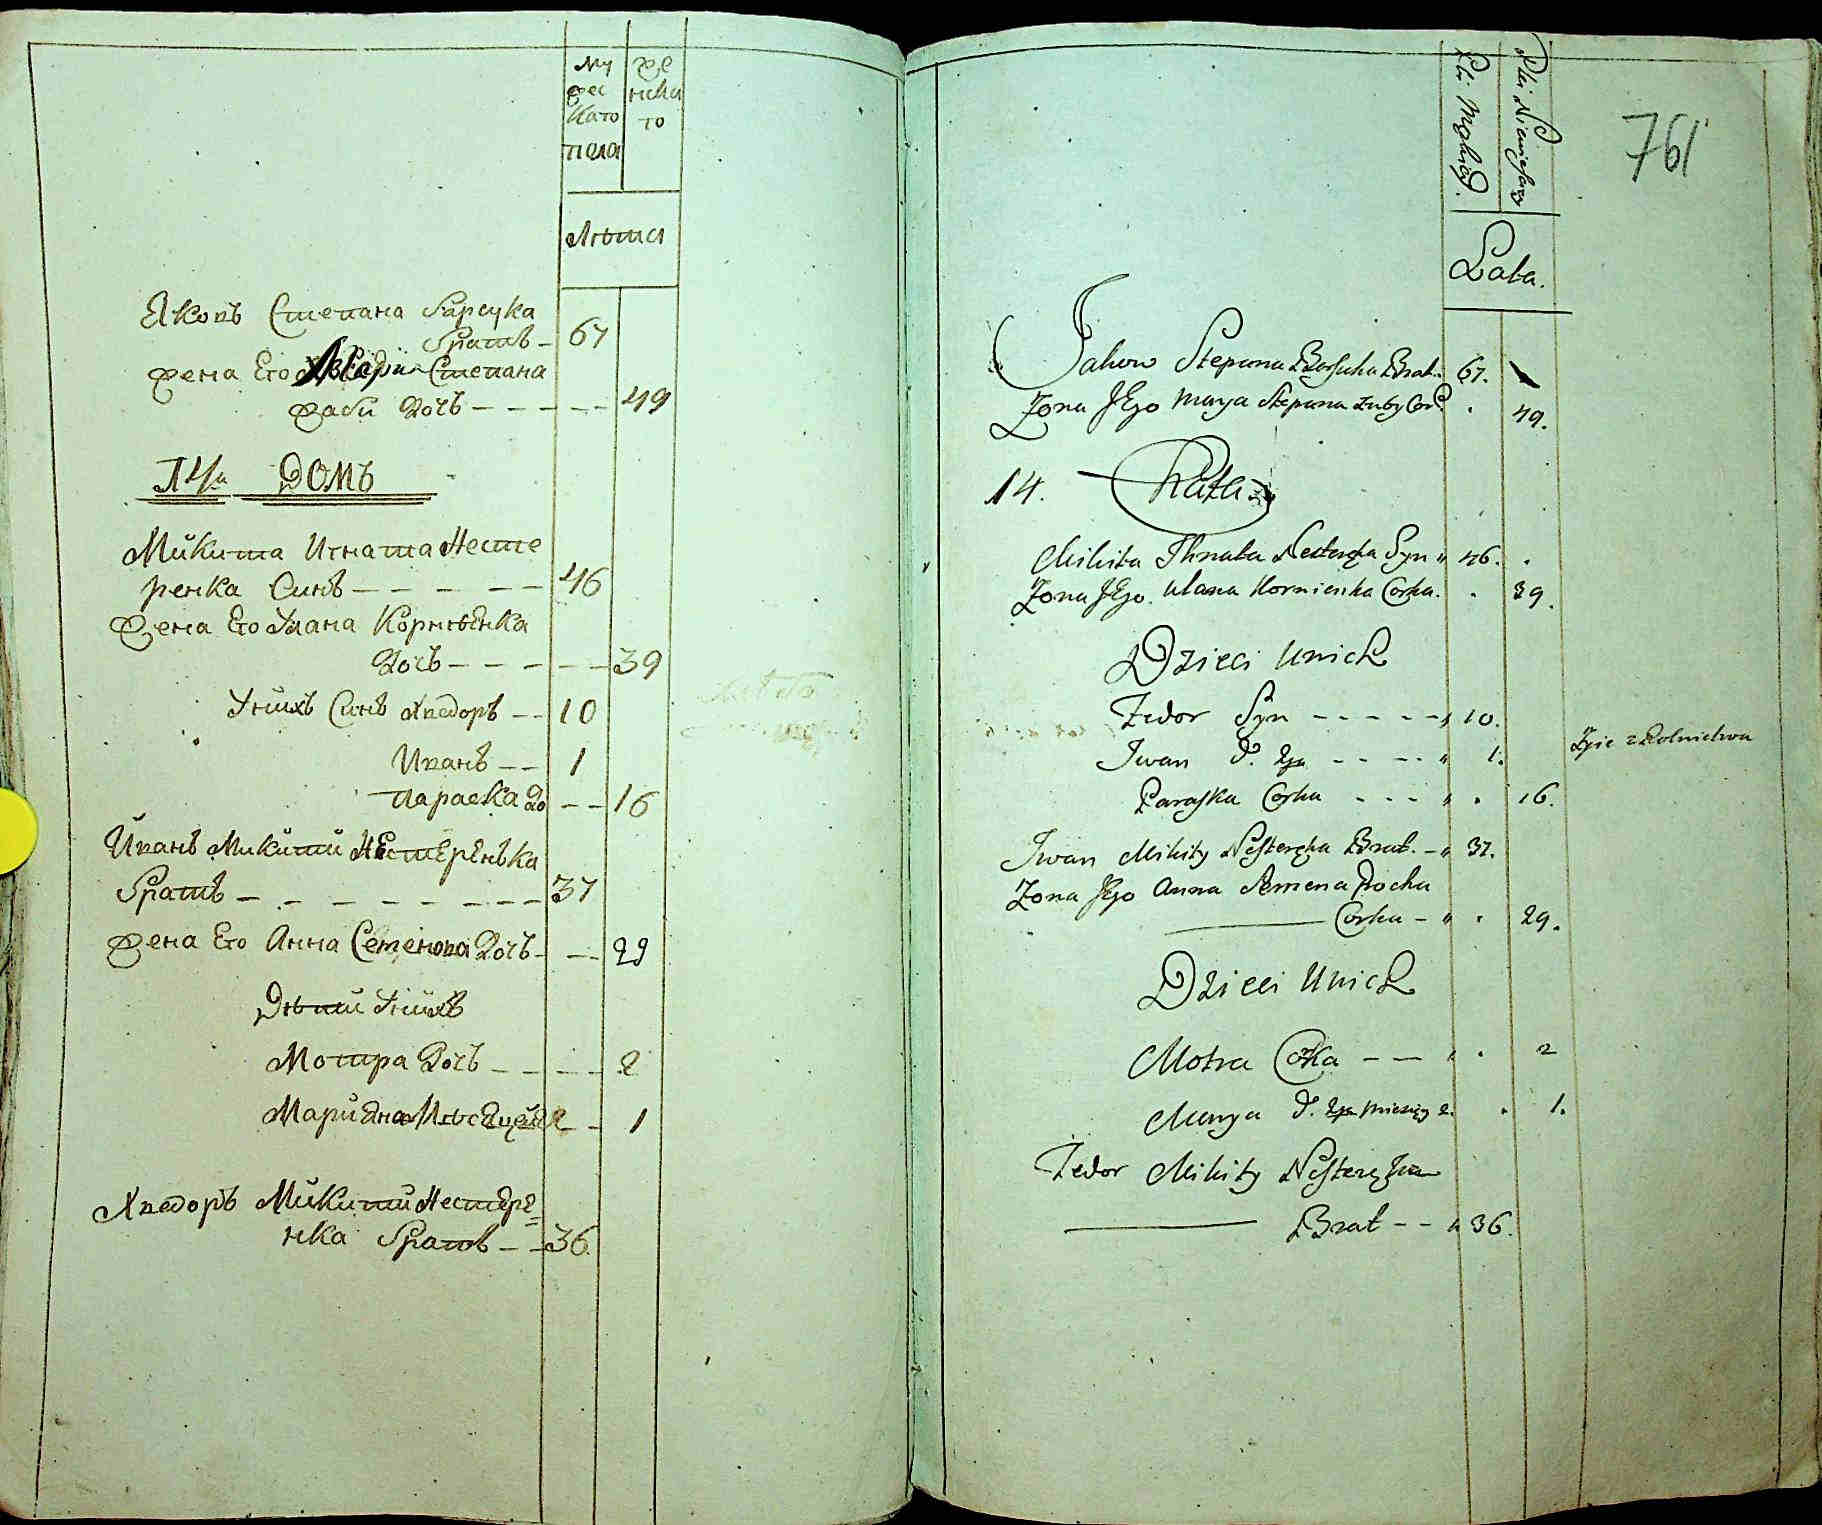 Му
жес
като
пола
же
нска
го
Лѣта
Яковъ Степана Барсука
Братъ – 67
жена Его Марья Степана
жабы Дочь – – – – – 49
14й ДОМЪ
Микита Игната Несте
ренка Синъ – – – – – 46
жена Его Улана Корнѣенка
Дочь – – – – – 39
Унихъ Синъ Хведоръ – – 10
Иванъ – – 1
Параска До – – 16
Иванъ Микити НЕстЕрЕнька
Братъ – – – – – – – – 37
жена Его Анна Семенова Дочь – – – 29
Дѣти Унихъ
Мотра Дочь – – – – 2
Мариєна – – 1
Хведоръ Микити Нестерe=
нка Братъ – – 36
761
Płci Męskiéy.
Płci Niewieściey
Lata.
Jakow Stepana Borsuka Brat. 67.
Zona JEgo Marya Stepana Zuby Cor. 49.
14. Chata
Mikita Ihnata Nesteręka Syn " 46.
Zona JEgo. Ulana Kornienka Corka. 39.
Dzieci Unich
Fedor Syn – – – – – " 10.
Iwan d. – – – – " 1.
Paraska Corka – – – " 16.
Żyie z Rolnictwa
Iwan Mikity Nesteręka Brat. – " 37.
Zona JEgo Anna Semena Docha
Corka – " 29.
Dzieci Unich
Motra Corka – – " 2
Marya d. miesięcy 2. 1.
Fedor Mikity Nesteręka
Brat – – " 36.